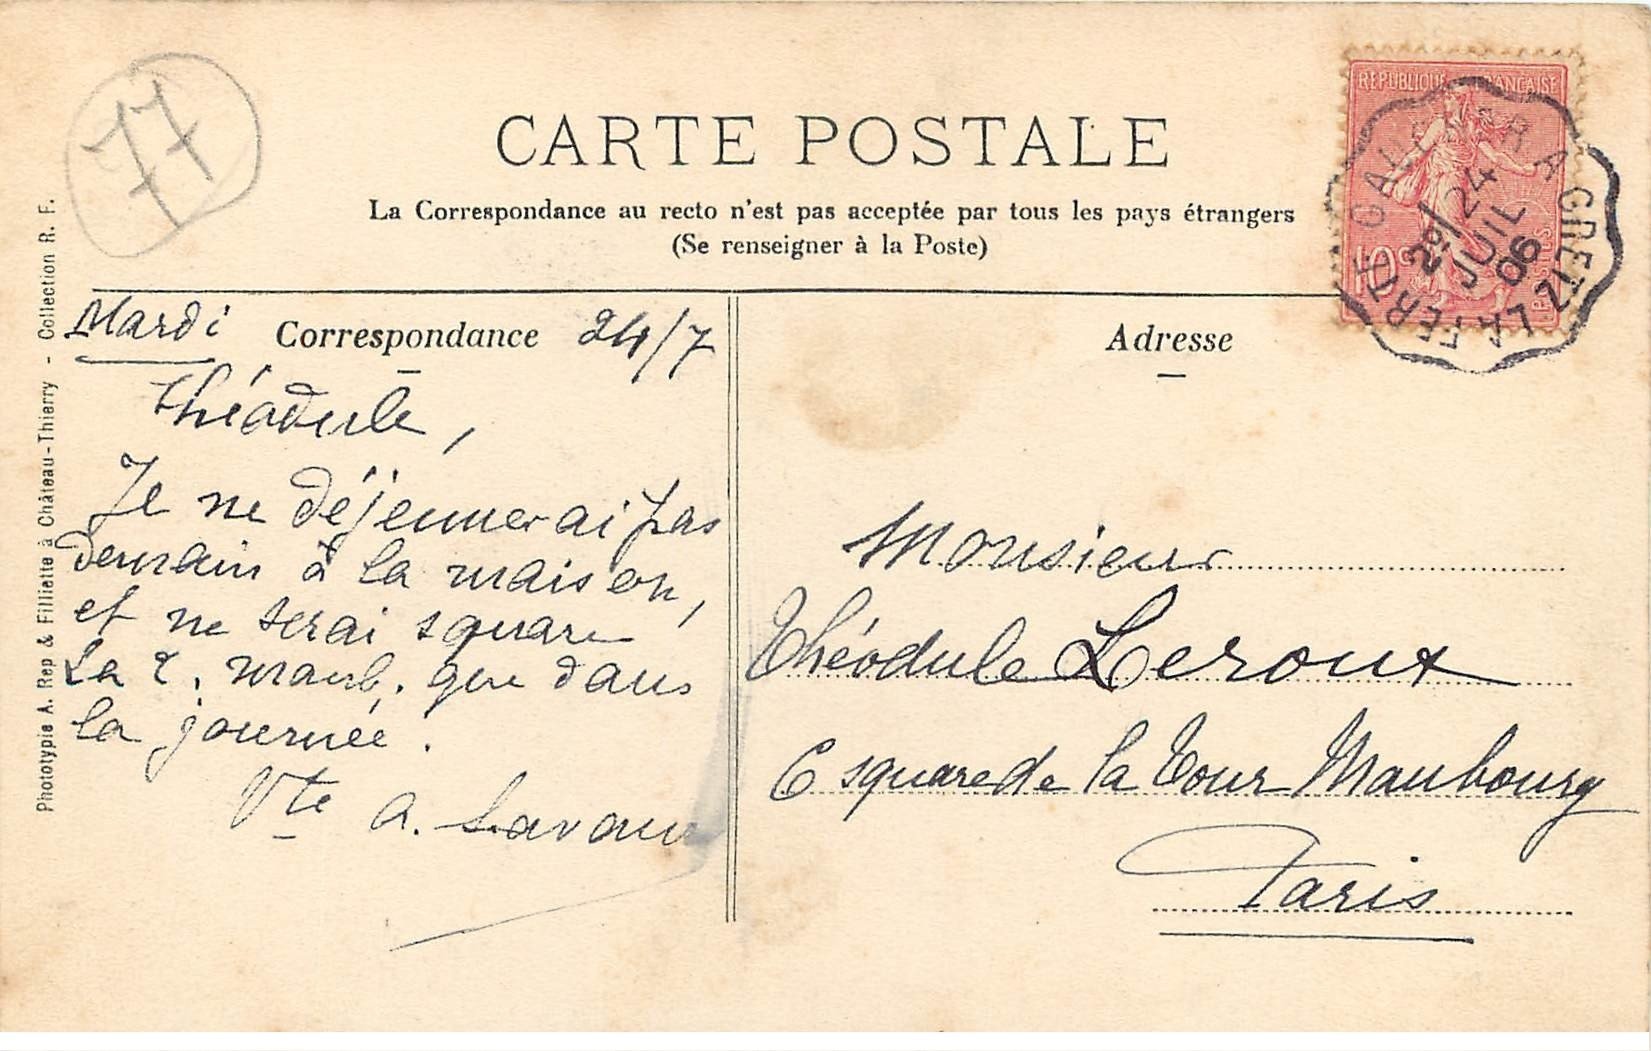 77
CARTE POSTALE
La Correspondance au recto n'est pas acceptée par tous les pays étrangers
(Se renseigner à la Poste)
REPUBLIQUE FRANÇAISE
10c
POSTES
LA FERTE GAUCHER A GRETZ
2º/24
JUIL
06
Phototypie A. Rep & Filliette à Château-Thierry - Collection R. F.
Mardi Correspondance 24/7
Théodule,
Je ne déjeunerai pas
demain à la maison,
et ne serai square
La T. Maub. que dans
la journée.
Vte A. Lavaur
Adresse
Monsieur
Théodule Leroux
6 square de la Tour Maubourg
Paris